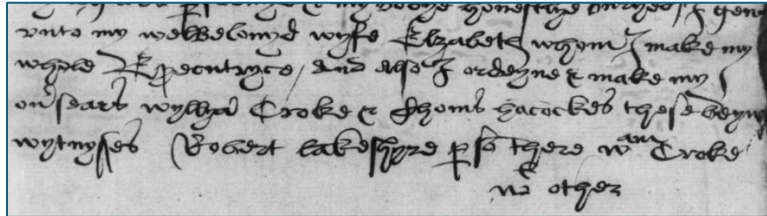 my body honestlye buryed, I geve
unto my welbelovyd wyfe Elzabeth whom I make my
whole Execcutryce, And Also I ordeyne & make my
ov'sears wyllyā Croke & Thoms hacockes these beyng
wytnysses Robert lakeshyre pson there wm Croke
wt other